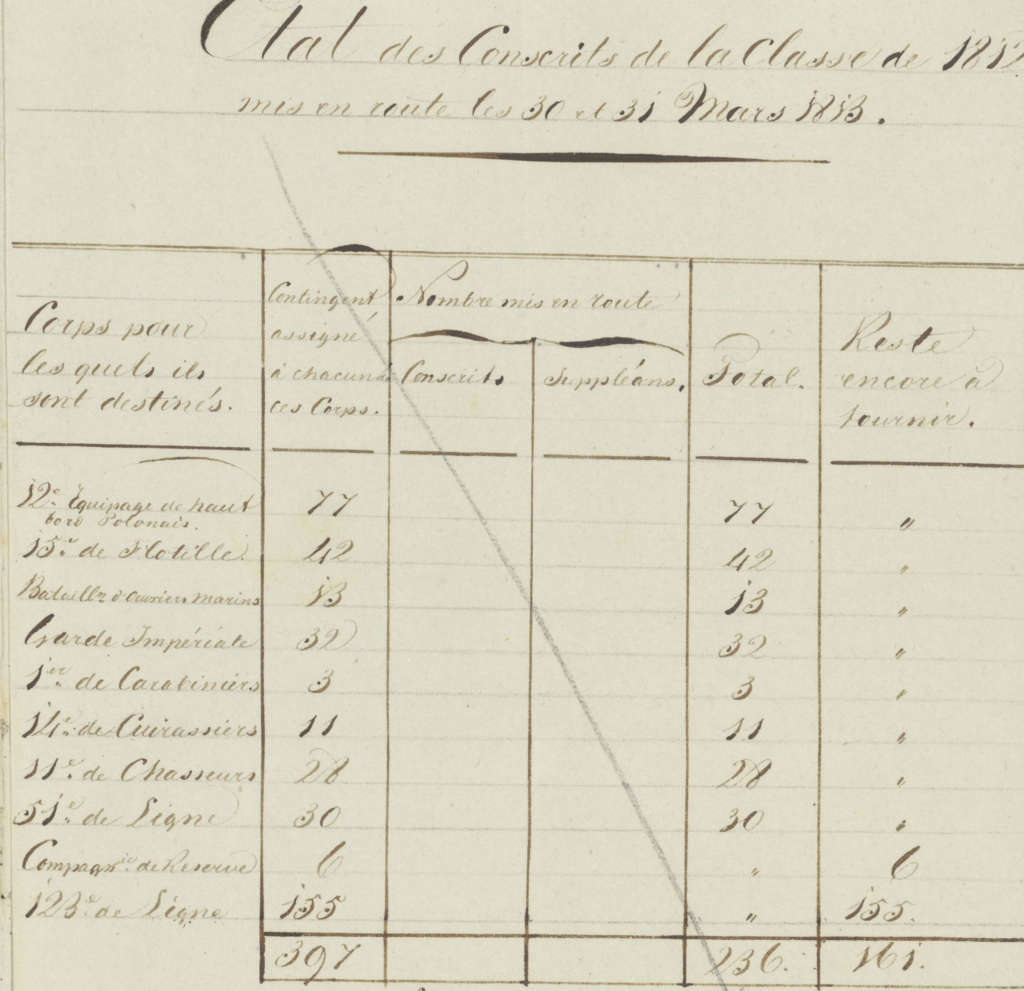 Etat des Conscrits de la Classe de 1812
mis en route les 30 et 31 Mars 1813.
Corps pour
les quels ils
sont destinés.
Contingent
assigné
à chacun de
ces Corps.
Nombre mis en route
Conscrits
Suppléans.
Total.
Reste
encore à
fournir.
12e. Equipage de haut 77 77 "
bord Polonais.
15e. de Flotille 42 42 "
Batailln d'ouvriers marins 13 13 "
Garde Impériale 32 32 "
1er. de Carabiniers 3 3 "
14e. de Cuirassiers 11 11 "
11e. de Chasseurs 28 28 "
51e. de Ligne 30 30 "
Compagnie de Reserve 6 " 6
123e. de Ligne 155 " 155.
397 236. 161.